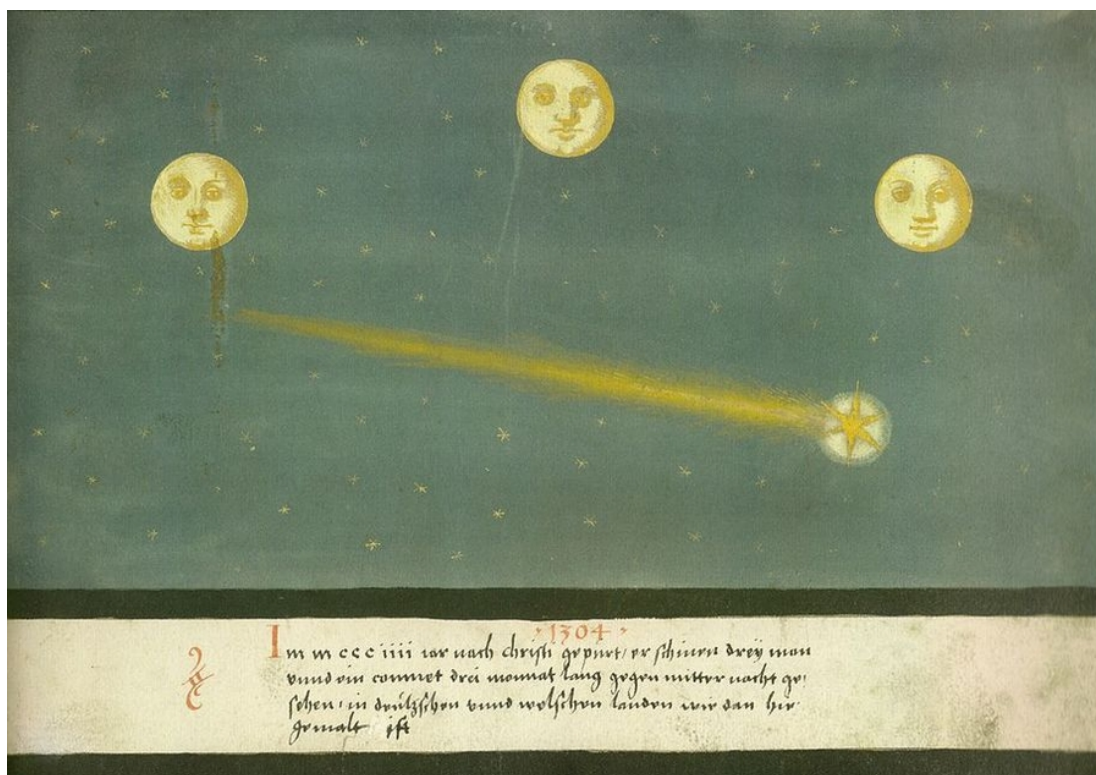 ·1304·
Im m ccc iiii iar nach christi gepürt / er schinen drey mon
vnnd ein commet drei monnat lang gegen mitter nacht ge/
sehen / in deützschen vnnd welschen landen wie dan hir
gemalt ist